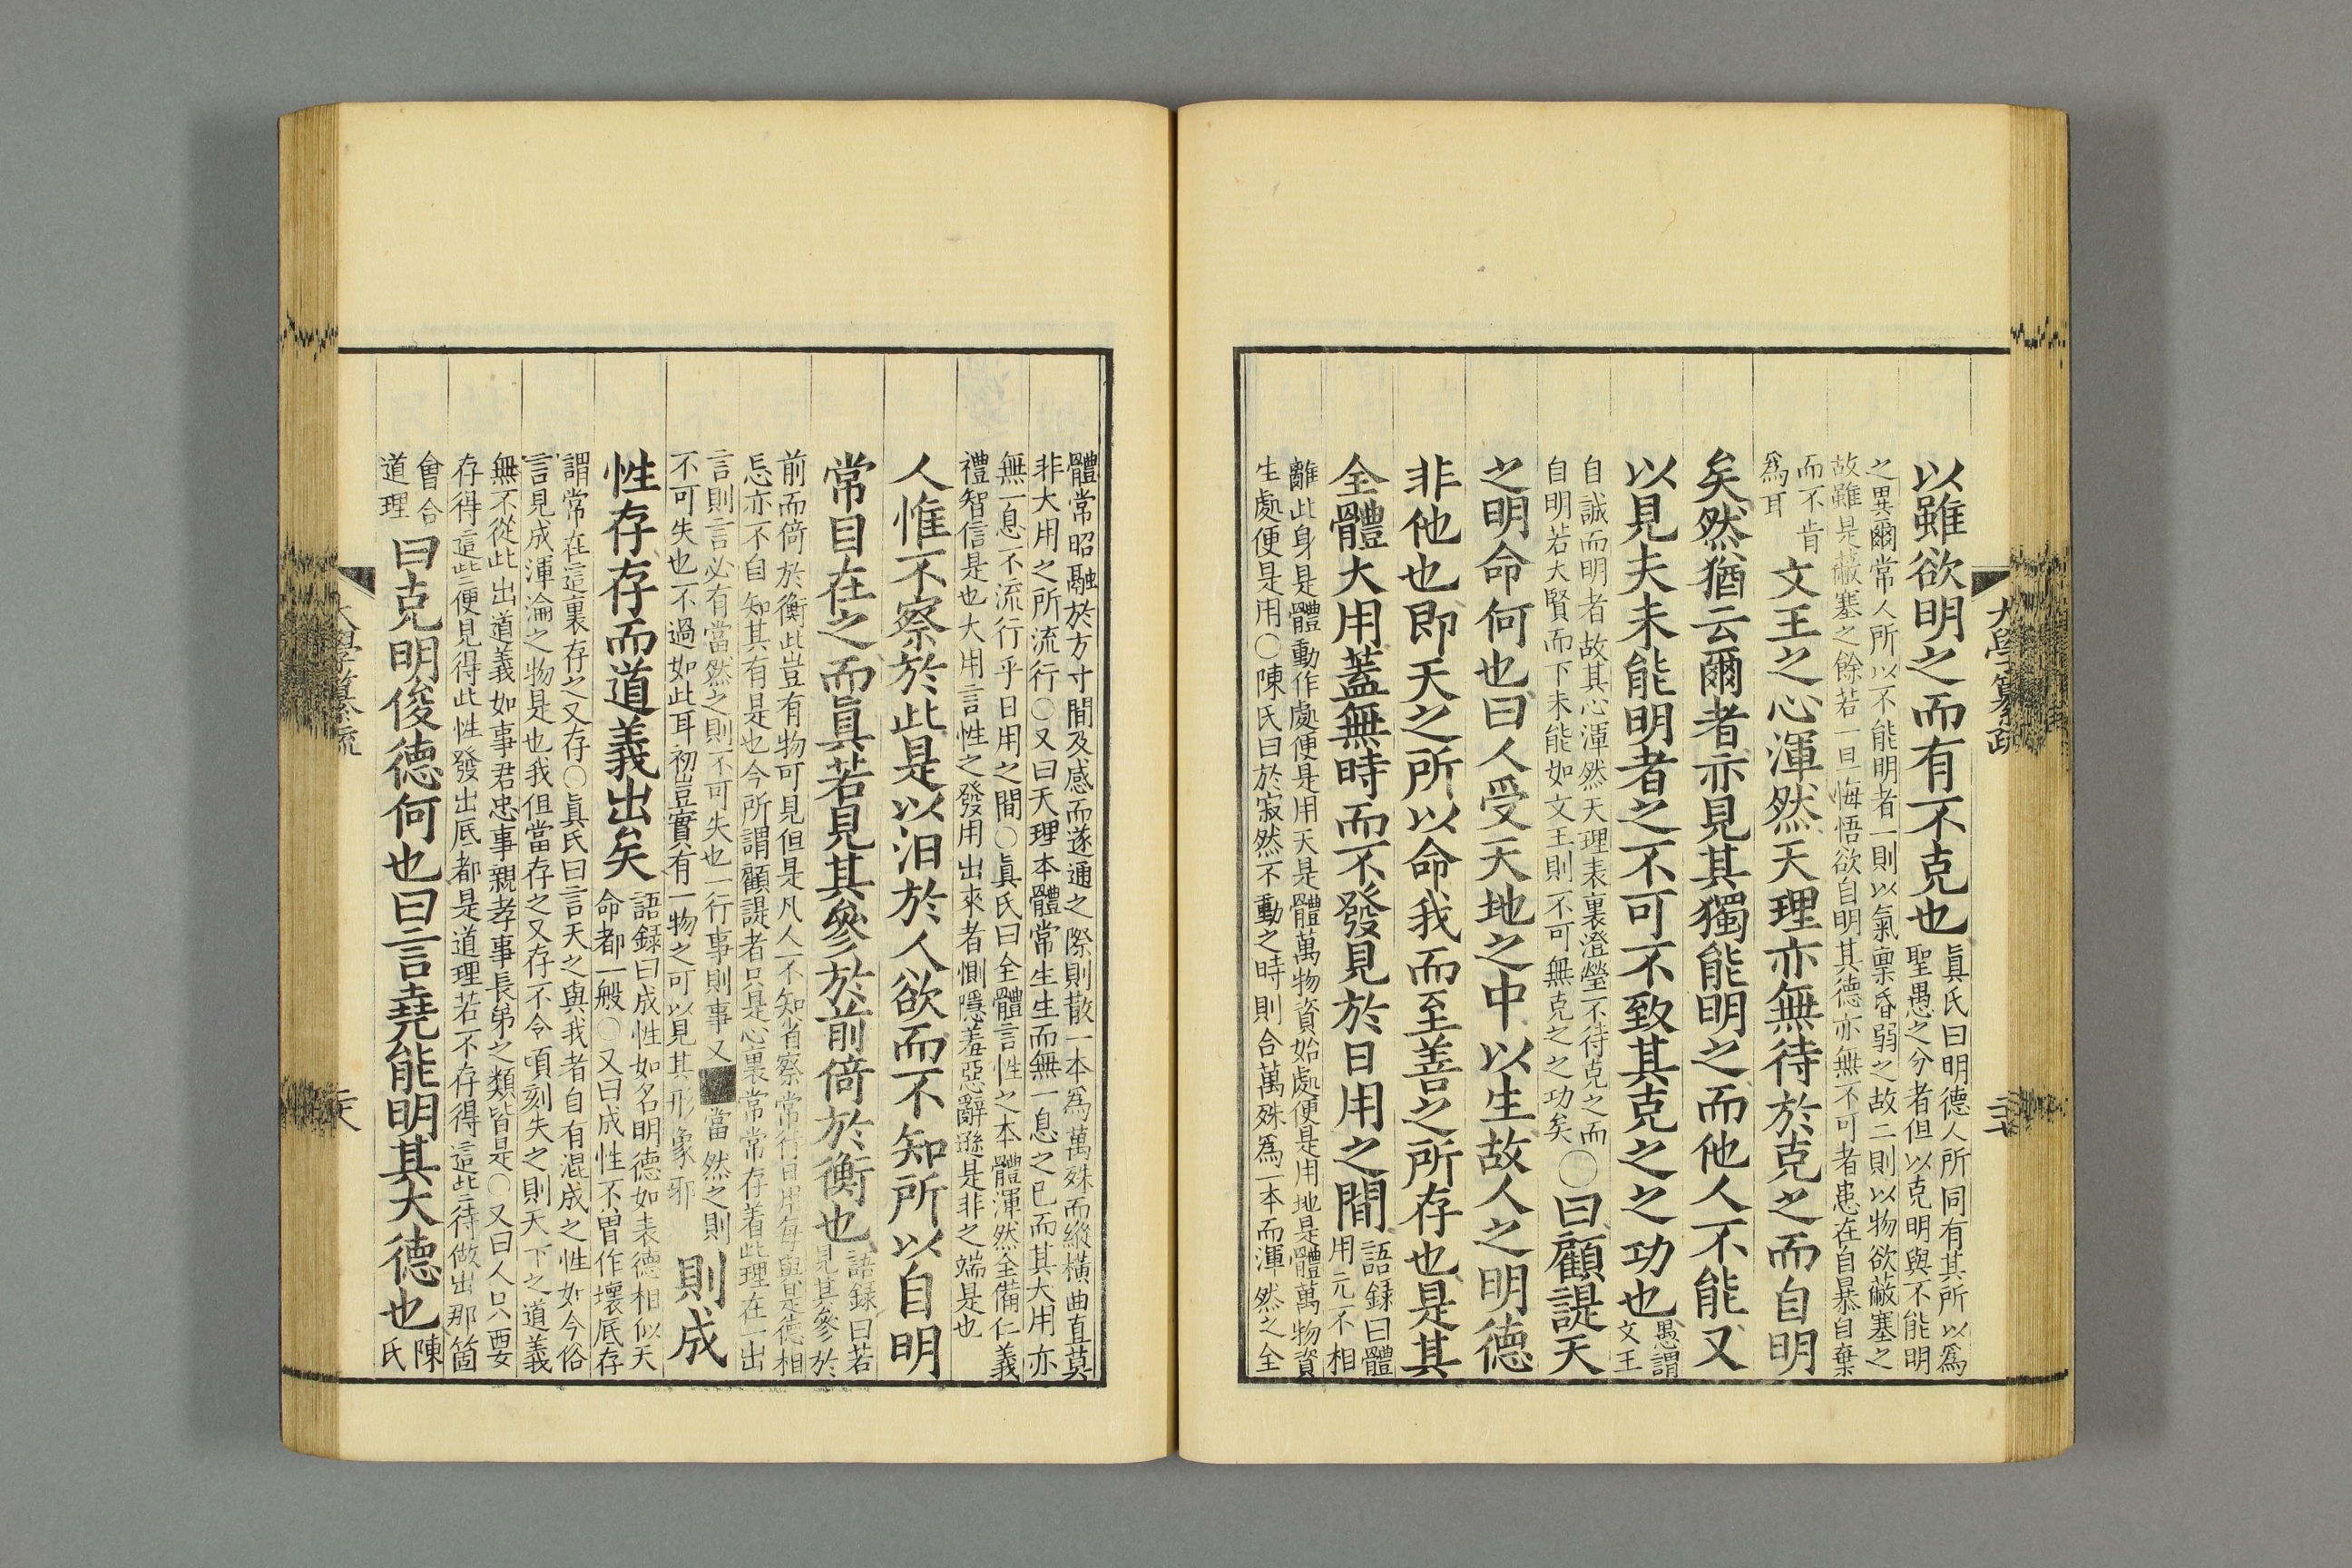 以雖欲明之而有不克也
眞氏曰明德人所同有其所以爲
聖愚之分者但以克明與不能明
之異爾常人所以不能明者一則以氣稟昏弱之故二則以物欲蔽塞之
故雖是蔽塞之餘若一旦悔悟欲自明其德亦無不可者患在自暴自棄
而不肯
爲耳
文王之心渾然天理亦無待於克之而自明
矣然猶云爾者亦見其獨能明之而他人不能又
以見夫未能明者之不可不致其克之之功也
愚謂
文王
自誠而明者故其心渾然天理表裏澄瑩不待克之而
自明若大賢而下未能如文王則不可無克之之功矣
〇曰顧諟天
之明命何也曰人受天地之中以生故人之明德
非他也即天之所以命我而至善之所存也是其
全體大用蓋無時而不發見於日用之間
語錄曰體
用元不相
離此身是體動作處便是用天是體萬物資始處便是用地是體萬物資
生處便是用〇陳氏曰於寂然不動之時則合萬殊爲一本而渾然之全
大學纂疏
體常昭融於方寸間及感而遂通之際則散一本為萬殊而縱橫曲直莫
非大用之所流行〇又曰天理本體常生生而無一息之已而其大用亦
無一息不流行乎日用之間〇眞氏曰全體言性之本體渾然全備仁義
禮智信是也大用言性之發用出來者惻隱羞惡辭遜是非之端是也
人惟不察於此是以汨於人欲而不知所以自明
常目在之而眞若見其參於前倚於衡也
語錄曰若
見其參於
前而倚於衡此豈有物可見但是凡人不知省察常行日用每與是德相
忘亦不自知其有是也今所謂顧諟者只是心裏常常存着此理在一出
言則言必有當然之則不可失也一行事則事又當然之則
不可失也不過如此耳初豈實有一物之可以見其形象邪
則成
性存存而道義出矣
語錄曰成性如名明德如表德相似天
命都一般〇又曰成性不曾作壞底存
謂常在這裏存之又存〇眞氏曰言天之與我者自有混成之性如今俗
言見成渾淪之物是也我但當存之又存不令頃刻失之則天下之道義
無不從此出道義如事君忠事親孝事長弟之類皆是〇又曰人只要
存得這些便見得此性發出底都是道理若不存得這些待做出那箇
會合
道理
曰克明俊德何也曰言堯能明其大德也
陳
氏